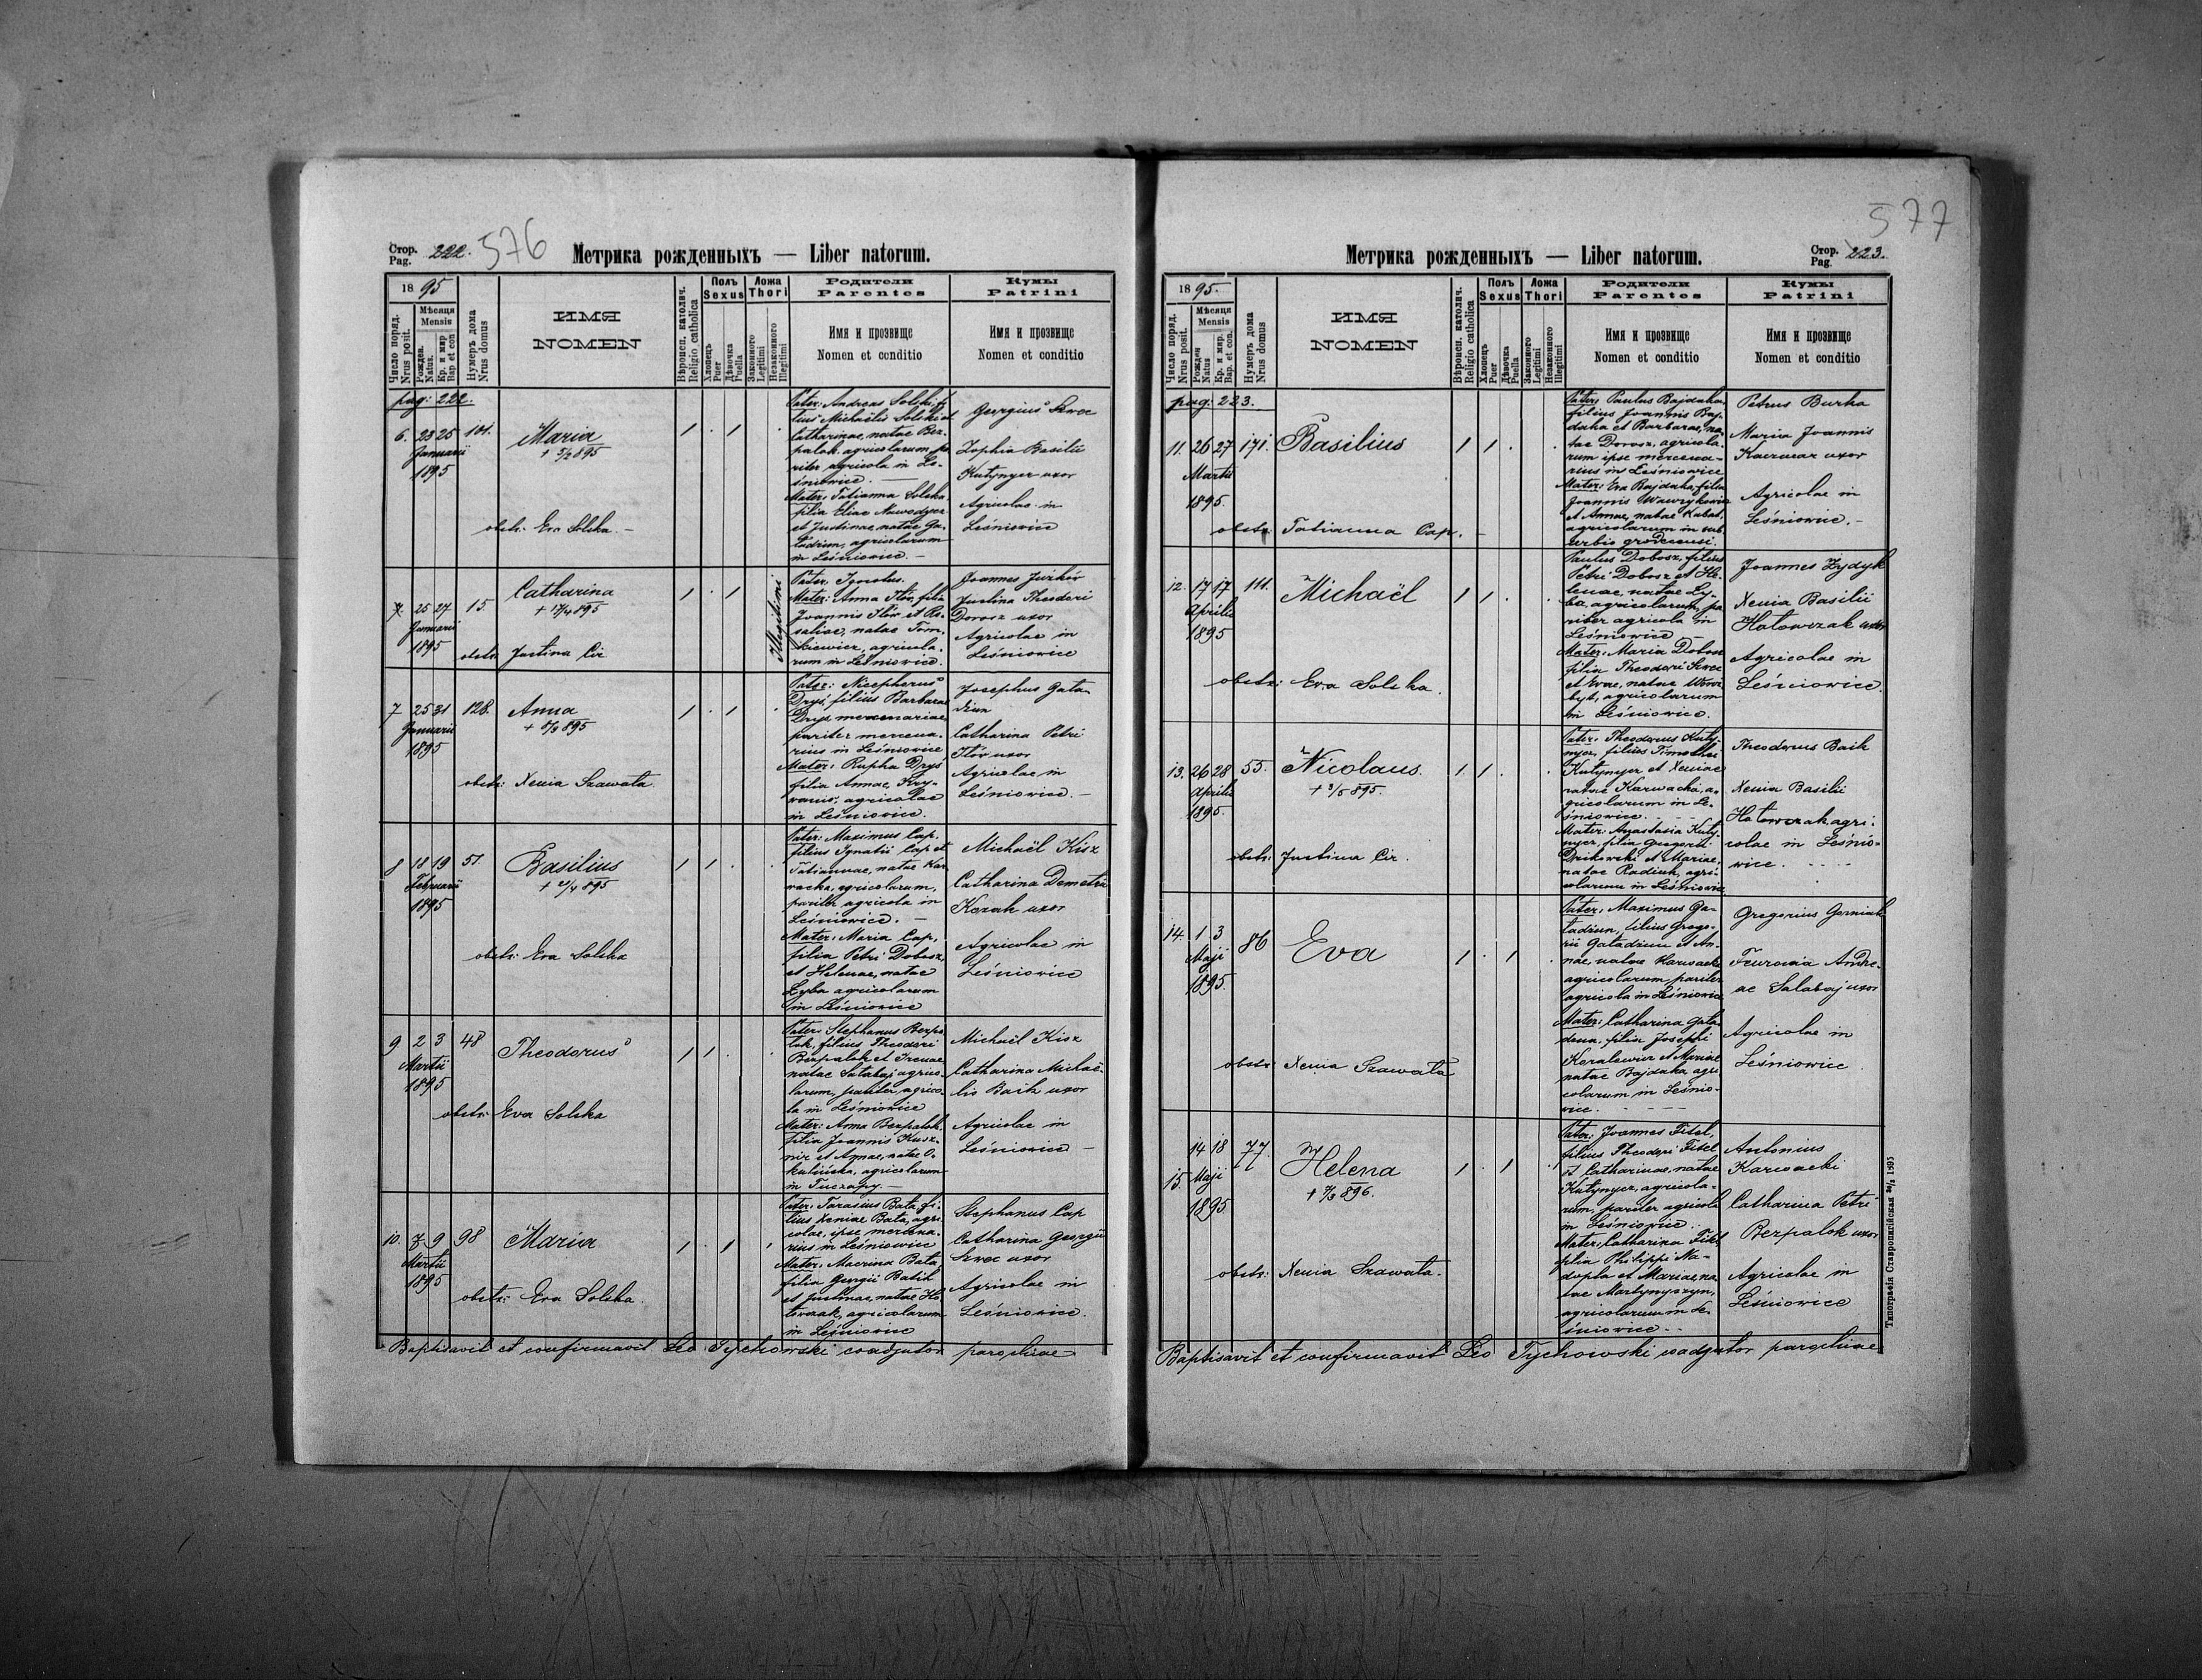 Стор. Pag. 222. 576
Метрика рожденныхъ — Liber natorum.
18 95
Число поряд. Nrus posit.
Мѣсяця Mensis
Рожден. Natus.
Кр. и мир Bap et con
Нумеръ дома Nrus domus
ИМЯ
NOMEN
Вѣроисп. католич. Religio catholica
Полъ Sexus
Хлопець Puer
Дѣвочка Puella
Ложа Thori
Законного Legitimi
Незаконного Illegitimi
Родители
Parentes
Имя и прозвище
Nomen et conditio
Кумы
Patrini
Имя и прозвище
Nomen et conditio
pag: 222.
6. 23 25 Januarii 1895
101.
Maria
obstr: Eva Solska. —
Pater: Andreas Solski, fi-
lius Michaëlis Solski et
Catharinae, natae Bez-
palok agricolarum, pa-
riter agricola in Le-
śniowice. —
Mater: Tatianna Solska
filia Eliae Nawodyer
et Justinae, natae Ga-
ładziun, agricolarum
in Leśniowice. —
Georgius Szwec
Zophia Basilii
Kutynyer uxor
Agricolae in
Leśniowice
7. 25 27 Januarii 1895
15
Catharina
+ 17/4 895
obstr: Justina Cir
Illegitimi
Pater: Ignotus.
Mater: Anna Ilów filia
Joannis Ilów et Ro-
saliae, natae Tom-
kiewicz, agricola-
rum in Leśniowice.
Joannes Jurków
Justina Theodori
Dorosz uxor
Agricolae in
Leśniowice
7 25 31 Januarii 1895
128.
Anna
+ 8/3 895
obstr: Xenia Szawała.
Pater: Nicephorus
Dryś, filius Barbarae
Dryś mercenariae
pariter mercena-
rius in Leśniowice
Mater: Rupha Dryś
filia Annae, Kry-
waniś, agricolae
in Leśniowice.
Josephus Gała-
dziun
Catharina Petri
Ilów uxor
Agricolae in
Leśniowice. —
8 18 19 Februarii 1895
51.
Basilius
+ 2/4 895
obstr: Eva Solska
Pater: Maximus Cap.
filius Ignatii Cap et
Tatiannae, natae Kar-
wacka, agricolarum,
pariter agricola in
Leśniowice. —
Mater: Maria Cap,
filia Petri Dobosz
et Helenae, natae
Łyba agricolarum
in Leśniowice
Michaël Kisz
Catharina Demetrii
Kozak uxor
Agricolae in
Leśniowice
9 2 3 Martii 1895
48
Theodorus
obstr: Eva Solska
Pater: Stephanus Bezpa-
lok, filius Theodori
Bezpalok et Irenae
natae Sałabaj agrico-
larum, pariter, agrico-
la in Leśniowice
Mater: Anna Bezpalok
filia Joannis Kusz-
nir et Agnae, natae O-
kulińska, agricolarum
in Tuczapy. —
Michaël Kisz
Catharina Michaë-
lis Baik uxor
Agricolae in
Leśniowice —
10. 7 9 Martii 1895
98
Maria
obstr: Eva Solska.
Pater: Tarasius Bata, fi-
lius Xeniae Bata, agri-
colae, ipse mercena-
rius in Leśniowice
Mater: Macrina Bata
filia Georgii Batih
et Justinae, natae Ho-
łowczak, agricolarum
in Leśniowice
Stephanus Cap
Catharina Georgii
Szwec uxor
Agricolae in
Leśniowice.
Baptisavit et confirmavit Leo Tychowski coadjutor parochiae
577
Метрика рожденныхъ — Liber natorum.
Стор. Pag. 223.
18 95.
Число поряд. Nrus posit.
Мѣсяця Mensis
Рожден Natus
Кр. и мир. Bap. et con.
Нумеръ дома Nrus domus
ИМЯ
NOMEN
Вѣроисп. католич. Religio catholica
Полъ Sexus
Хлопець Puer
Дѣвочка Puella
Ложа Thori
Законного Legitimi
Незаконного Illegitimi
Родители
Parentes
Имя и прозвище
Nomen et conditio
Кумы
Patrini
Имя и прозвище
Nomen et conditio
pag: 223.
11. 26 27 Martii 1895.
171.
Basilius
obstr: Tatianna Cap. —
Pater: Paulus Bajdaka,
filius Joannis Baj-
daka et Barbarae, na-
tae Dorosz, agricola-
rum ipse mercena-
rius in Leśniowice
Mater: Eva Bajdaka, filia
Joannis Wawrykowicz
et Annae, natae Kubat,
agricolarum in sub-
urbio grodecensi.
Petrus Burka
Maria Joannis
Kaczmar uxor
Agricolae in
Leśniowice. —
12. 17 17 Aprilis 1895
111.
Michaël
obstr: Eva Solska.
Paulus Dobosz, filius
Petri Dobosz et He-
lenae, natae Ły-
ba, agricolarum, pa-
riter agricola in
Leśniowice —
Mater: Maria Dobosz
filia Theodori Szwec
et Evae, natae
agricolarum
in Leśniowice.
Joannes Hydyk
Xenia Basilii
Hołowczak uxor
Agricolae in
Leśniowice.
13. 26 28 Aprilis 1895.
55.
Nicolaus.
+ 3/5 895.
obstr: Justina Cir.
Pater: Theodorus Kuty-
nyer, filius Timothei
Kutynyer et Xeniae
natae Karwacka, a-
gricolarum in Le-
śniowice. —
Mater: Anastasia Kuty-
nyer, filia Gregorii
Dzikowski et Mariae,
natae Radiuk, agri-
colarum in Leśniowice
Theodorus Baik
Xenia Basilii
Hołowczak agri-
colae in Leśnio-
wice.
14. 1 3 Maji 1895.
86
Eva
obstr: Xenia Szawała
Pater: Maximus Ga-
ładziun, filius Grego-
rii Gaładziun et An-
nae natae Karwacka
agricolarum, pariter
agricola in Leśniowice
Mater: Catharina Gała-
dziun, filia Josephi
Koralewicz et Mariae
natae Bajdaka agri-
colarum in Leśnio-
wice.
Gregorius Gorniak
Fevronia Andre-
ae Sałabaj uxor
Agricolae in
Leśniowice
15. 14 18 Maji 1895.
77.
Helena
obstr: Xenia Szawała.
Pater: Joannes Fitel,
filius Theodori Fitel
et Catharinae, natae
Kutynyer, agricola-
rum, pariter agricola
in Leśniowice.
Mater: Catharina Fitel
filia Philippi Na-
dopta et Mariae, na-
tae Martynyszyn,
agricolarum in Le-
śniowice. —
Antonius
Karwacki
Catharina Petri
Bezpalok uxor
Agricolae in
Leśniowice
Baptisavit et confirmavit Leo Tychowski coadjutor parochiae